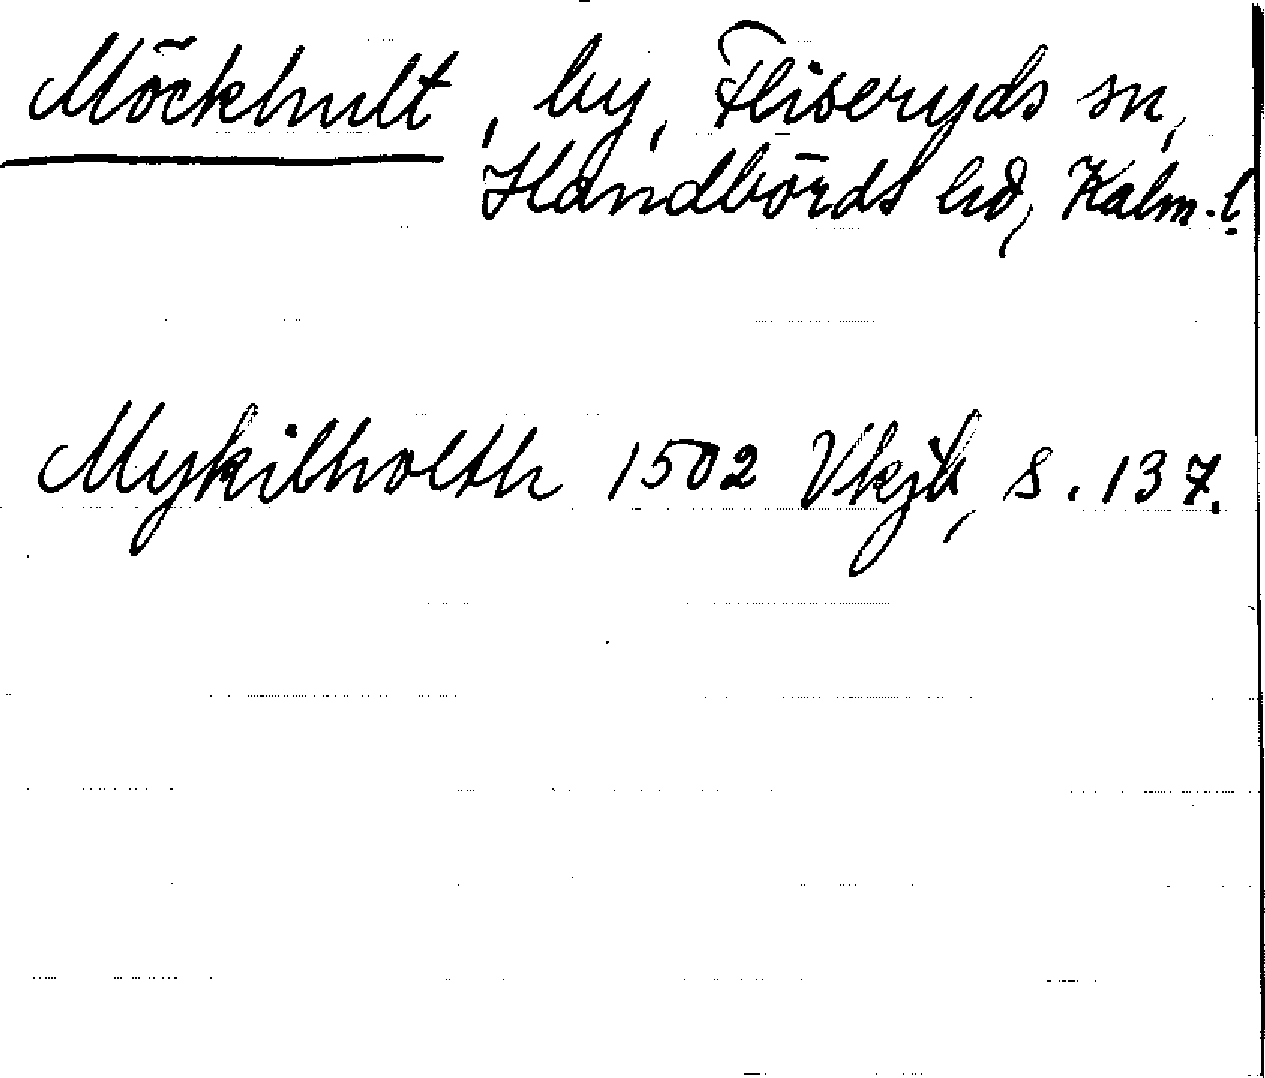 Möckhult, by, Fliseryds sn,
Handbörds hd, Kalm. l.
Mykilholth 1502 Vkjb, s. 137.